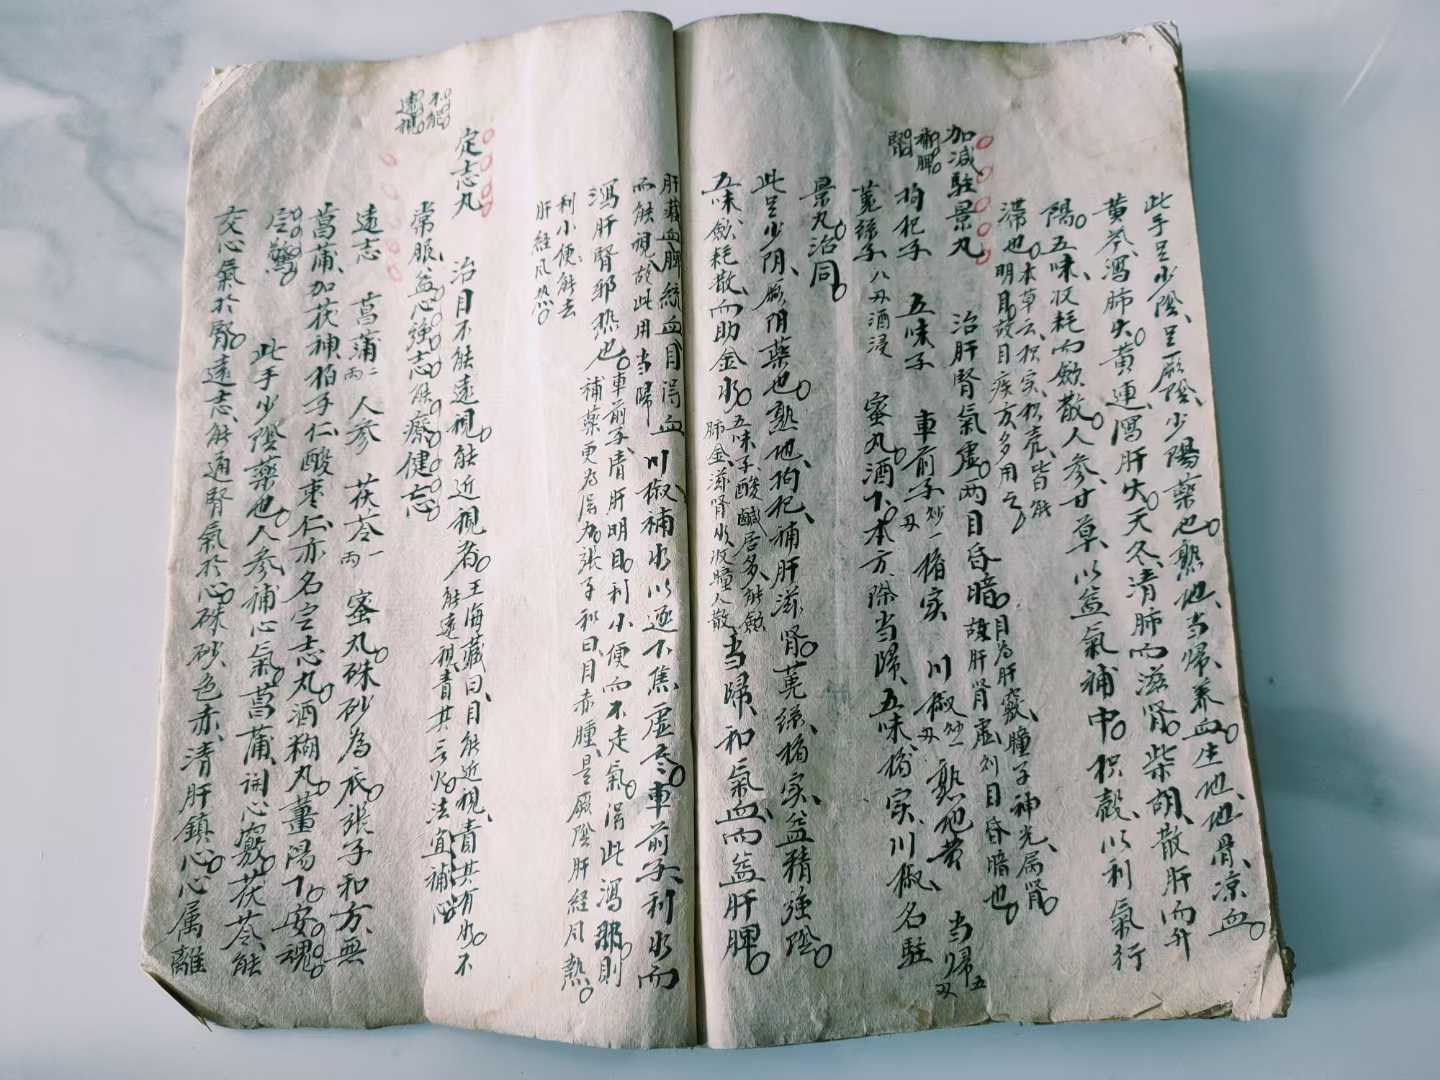 此手足少陰、足厥陰、少陽藥也、熟地、当歸、養血、生地、地骨、凉血、
黄芩瀉肺火、黄連瀉肝火、天冬清肺而滋腎、柴胡散肝而升
陽、五味收耗而斂散、人参、甘草、以益氣補中、枳殼以利氣行
滞也、本草云、枳实、枳壳、皆能
明目、故目疾方多用之
加減駐景丸
治肝腎氣虚、两目昏暗、
目为肝竅、瞳子神光属肾、
故肝肾虚、则目昏暗也
補脾
腎
枸杞子 五味子 車前子炒一刄 楮实 川椒炒一刄 熟地黄 当歸五刄
菟絲子八刄酒浸 蜜丸酒下、本方除当歸、五味、楮实、川椒、名駐
景丸治同
此足少阴、厥阴藥也、熟地、枸杞、補肝滋腎、菟絲、楮实、益精強陰、
五味、斂耗散、而助金水、
五味子酸鹹居多、能斂
肺金、滋肾水、收瞳人散
当歸、和氣血、而益肝脾、
肝藏血、脾統血、目得血
而能視、故此用当歸
川椒補火以逐下焦虚寒、車前子、利水而
瀉肝腎邪热也、
車前子、清肝明目、利小便而不走氣、謂此瀉邪、則
補藥更为得力、張子和曰、目赤腫、是厥陰肝経風熱、
利小便、能去
肝経风热
定志丸
治目不能遠視、能近視者、
王海藏曰、目能近視、責其有水、不
能遠視、責其無火、法宜補心
不能
遠視
常服益心強志、能療健忘
遠志 菖蒲二两 人参 茯苓一两 蜜丸硃砂為衣、張子和方、無
菖蒲、加茯神、柏子仁、酸枣仁、亦名定志丸、酒糊丸、薑湯下、安魂
定驚
此手少陰藥也、人参補心氣、菖蒲開心竅、茯苓能
交心氣於腎、遠志、能通腎氣於心、硃砂色赤、清肝鎮心、心属離